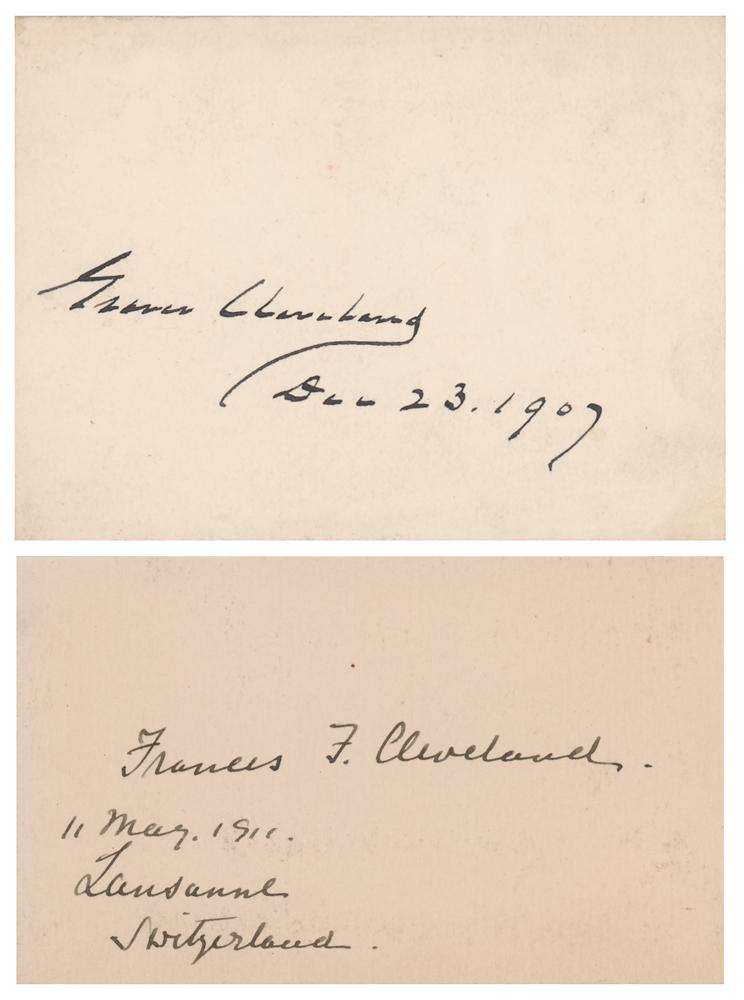 Grover Cleveland
Dec 23. 1907
Frances F. Cleveland.
11 May. 1911.
Lausanne
Switzerland.